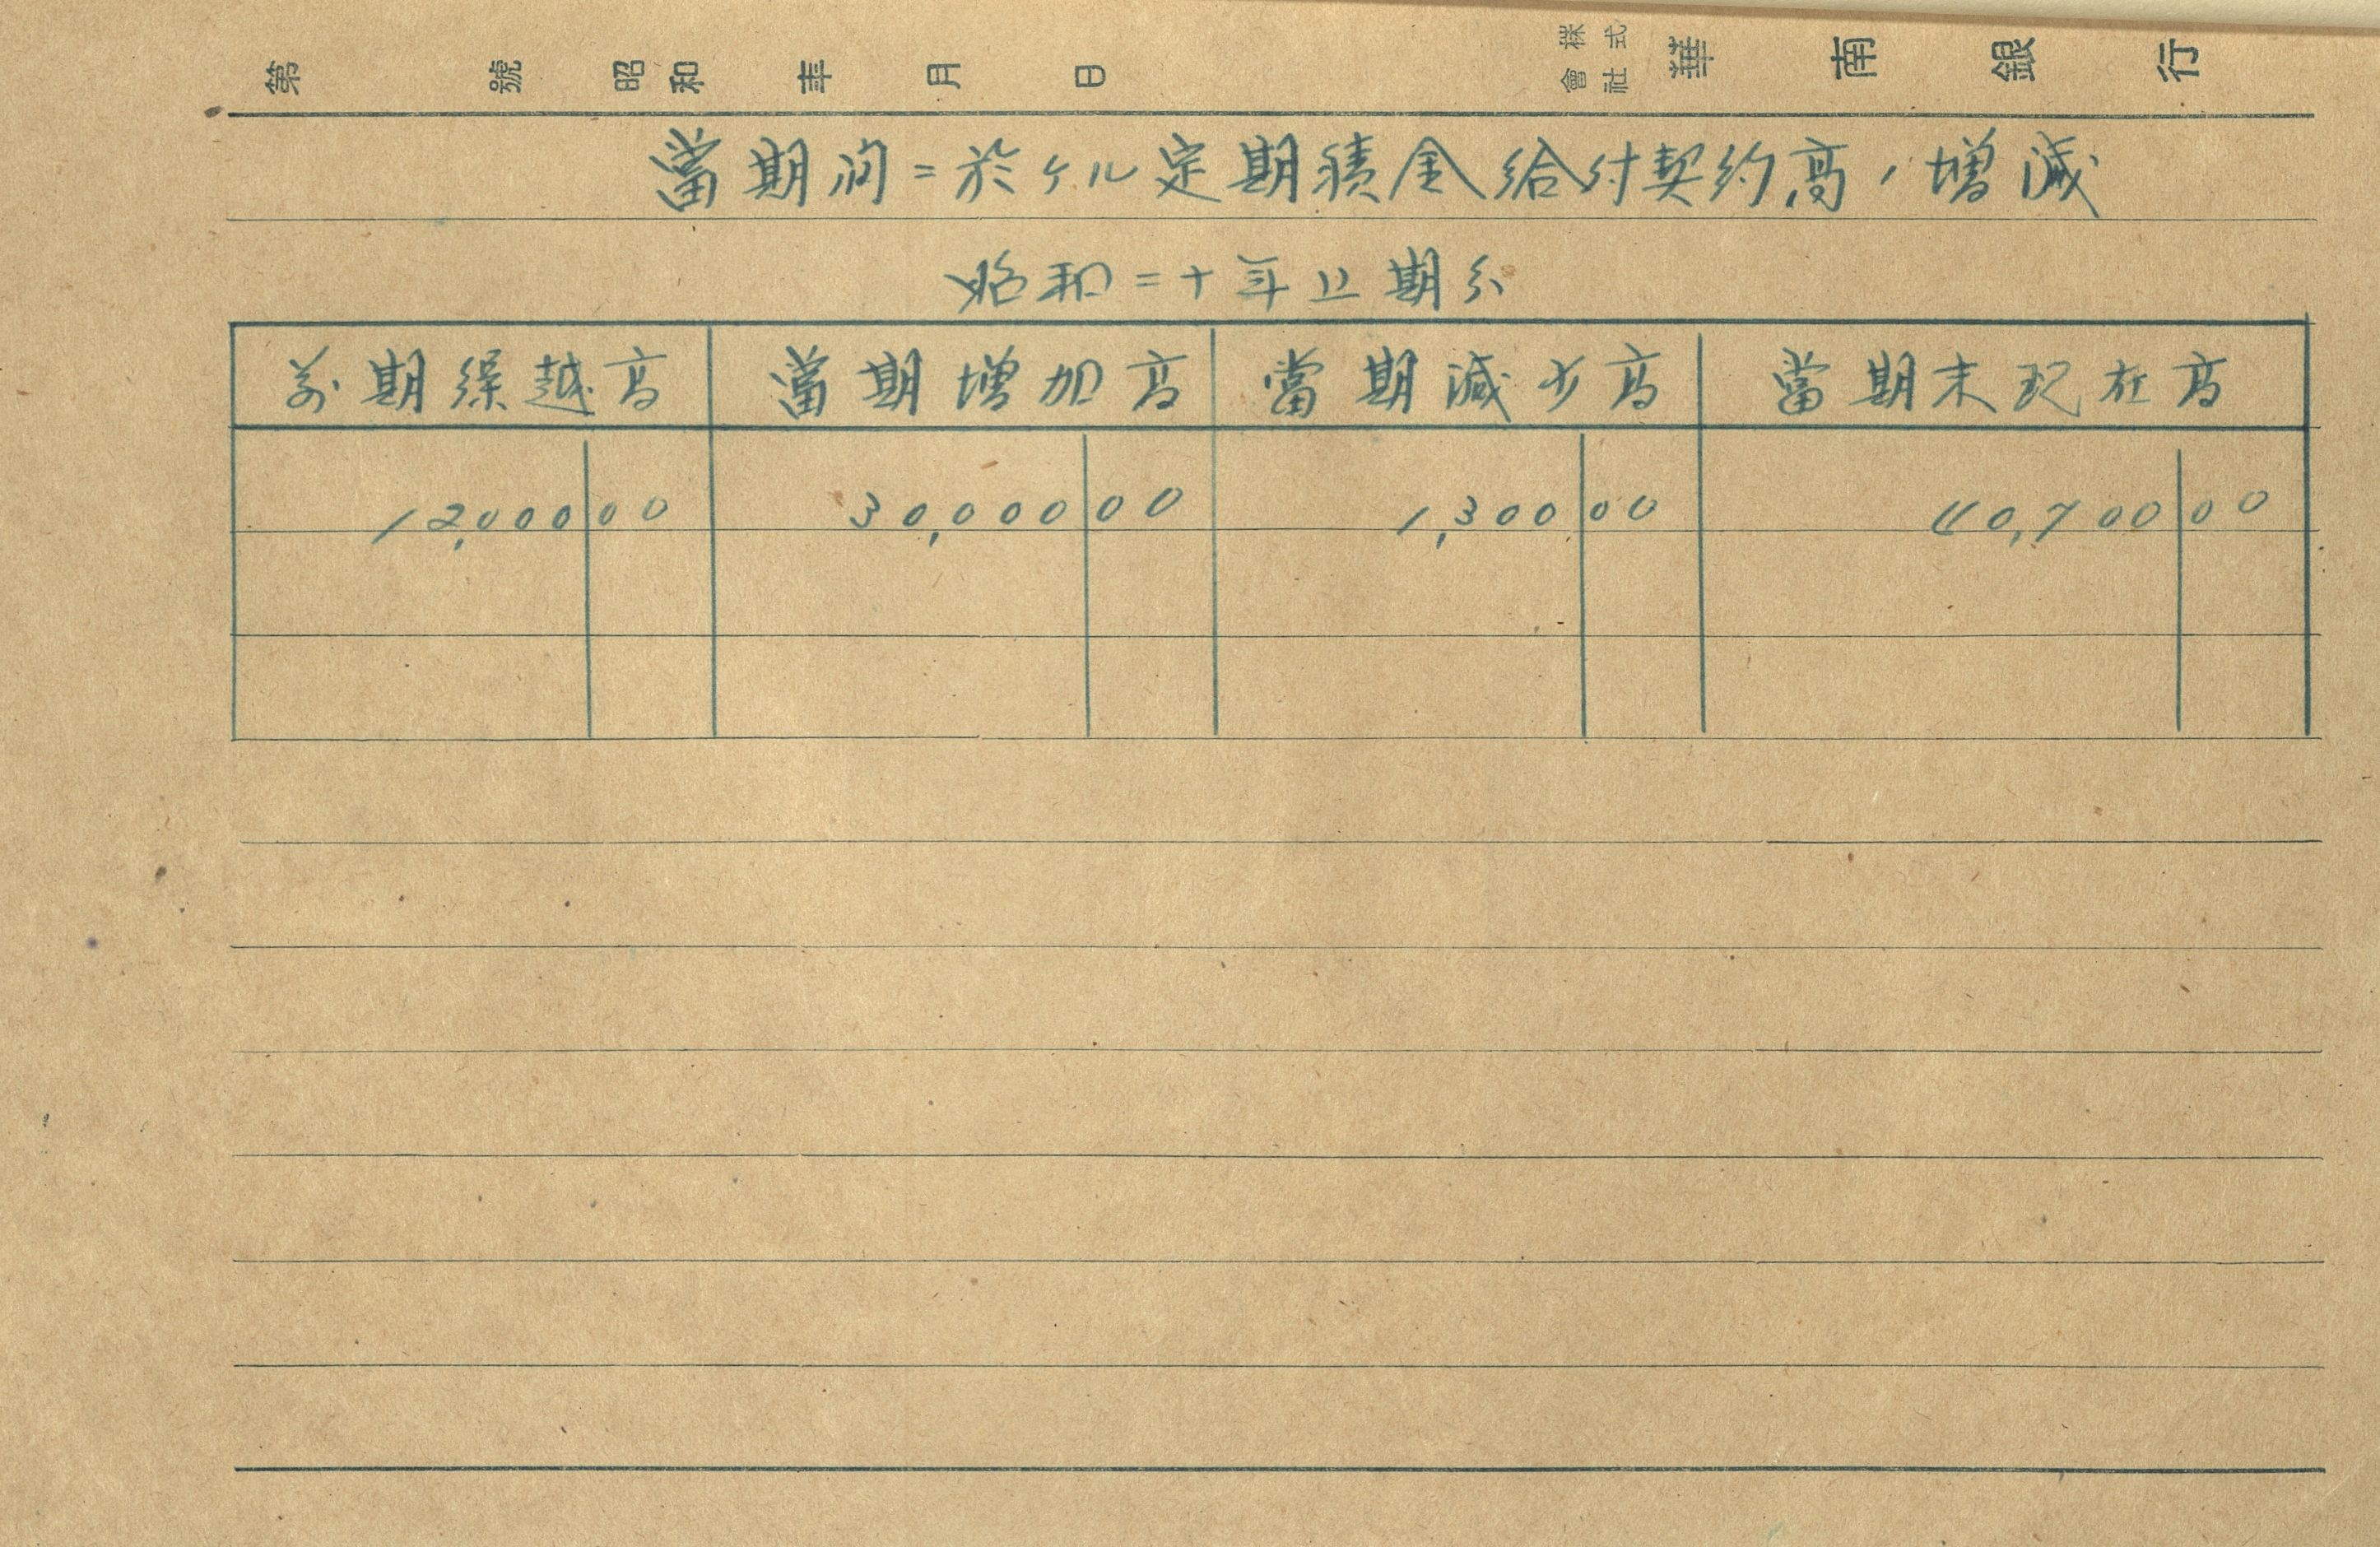 第 號 昭和 年 月 日 株式會社 華南銀行
當期間ニ於ケル定期積金給付契約高ノ増減
昭和二十年上期分
前期繰越高 當期増加高 當期減少高 當期末現在高
12,000 00 30,000 00 1,300 00 40,700 00